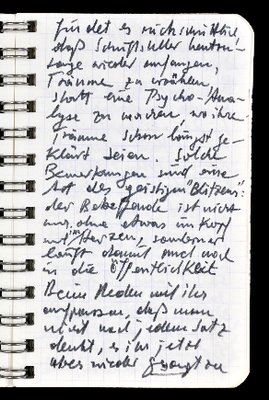 findet es rückschrittlich,
daß Schriftsteller heutzu-
tage wieder anfangen,
Träume zu erzählen,
statt eine Psycho-Ana-
lyse zu machen, wo ihre
Träume schon längst ge-
klärt seien. Solche
Bemerkungen sind eine
Art des geistigen "Blitzens":
der Betreffende ist nicht
nur ohne etwas im Kopf
und im Herzen, sondern
läuft damit auch noch
in die Öffentlichkeit
Beim Reden mit ihr
aufpassen, daß man
nicht nach jedem Satz
denkt, es ihr jetzt
aber wieder